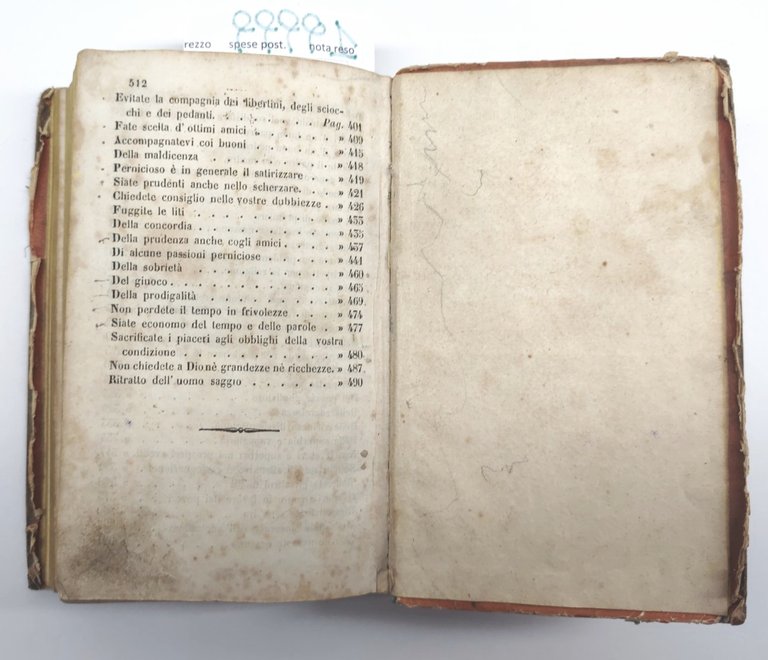 rezzo spese post. nota reso
512
Evitate la compagnia dei libertini, degli scioc-
chi e dei pedanti. . . . . . . . . Pag. 401
Fate scelta d'ottimi amici . . . . . . » 409
Accompagnatevi coi buoni . . . . . . » 415
Della maldicenza . . . . . . . . » 418
Pernicioso è in generale il satirizzare . . . » 419
Siate prudenti anche nello scherzare. . . . » 421
Chiedete consiglio nelle vostre dubbiezze . . » 426
Fuggite le liti . . . . . . . . . » 433
Della concordia . . . . . . . . . » 435
Della prudenza anche cogli amici . . . . » 437
Di alcune passioni perniciose . . . . . » 441
Della sobrietà . . . . . . . . . » 460
Del giuoco . . . . . . . . . . » 465
Della prodigalità . . . . . . . . » 469
Non perdete il tempo in frivolezze . . . . » 474
Siate economo del tempo e delle parole . . » 477
Sacrificate i piaceri agli obblighi della vostra
condizione . . . . . . . . . » 480
Non chiedete a Dio nè grandezze nè ricchezze. » 487
Ritratto dell'uomo saggio . . . . . . » 490